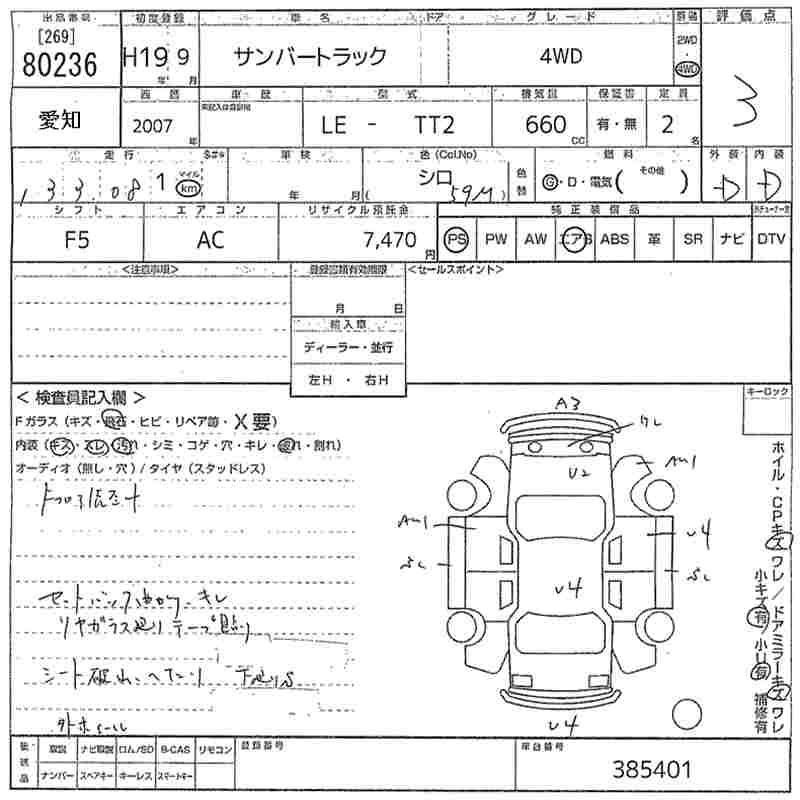 出品番号 初度登録 車名 ドア グレード 評価点
[269]
80236 H19 9 サンバートラック 4WD 2WD 4WD 3
年 月
愛知 西暦 車歴 型式 排気量 保証書 定員
2007 年 LE - TT2 660 cc 有・無 2 名
走行 車検 色(Col.No) 色替 燃料 外装 内装
133,081 マイル km 年 月 シロ (59M) G・D・電気(その他) D D
シフト エアコン リサイクル預託金 純正装備品
F5 AC 7,470 円 PS PW AW エアB ABS 革 SR ナビ DTV
<注意事項> 登録書類有効期限 <セールスポイント>
月 日
輸入車
ディーラー・並行
左H ・ 右H
<検査員記入欄> キーロック
Fガラス(キズ・飛石・ヒビ・リペア跡・X要)
内装(キズ・スレ・汚れ・シミ・コゲ・穴・キレ・破れ・割れ)
オーディオ(無し・穴)/タイヤ(スタッドレス)
A3
U2
U4
U4
U4
シート破れ、へたり 下廻りS
ホイル・CPキズワレ/ドアミラーキズワレ
小キズ有/小U有 補修有
後送品 取説 ナビ取説 ロム/SD B-CAS リモコン 登録番号 車台番号
ナンバー スペアキー キーレス スマートキー 385401